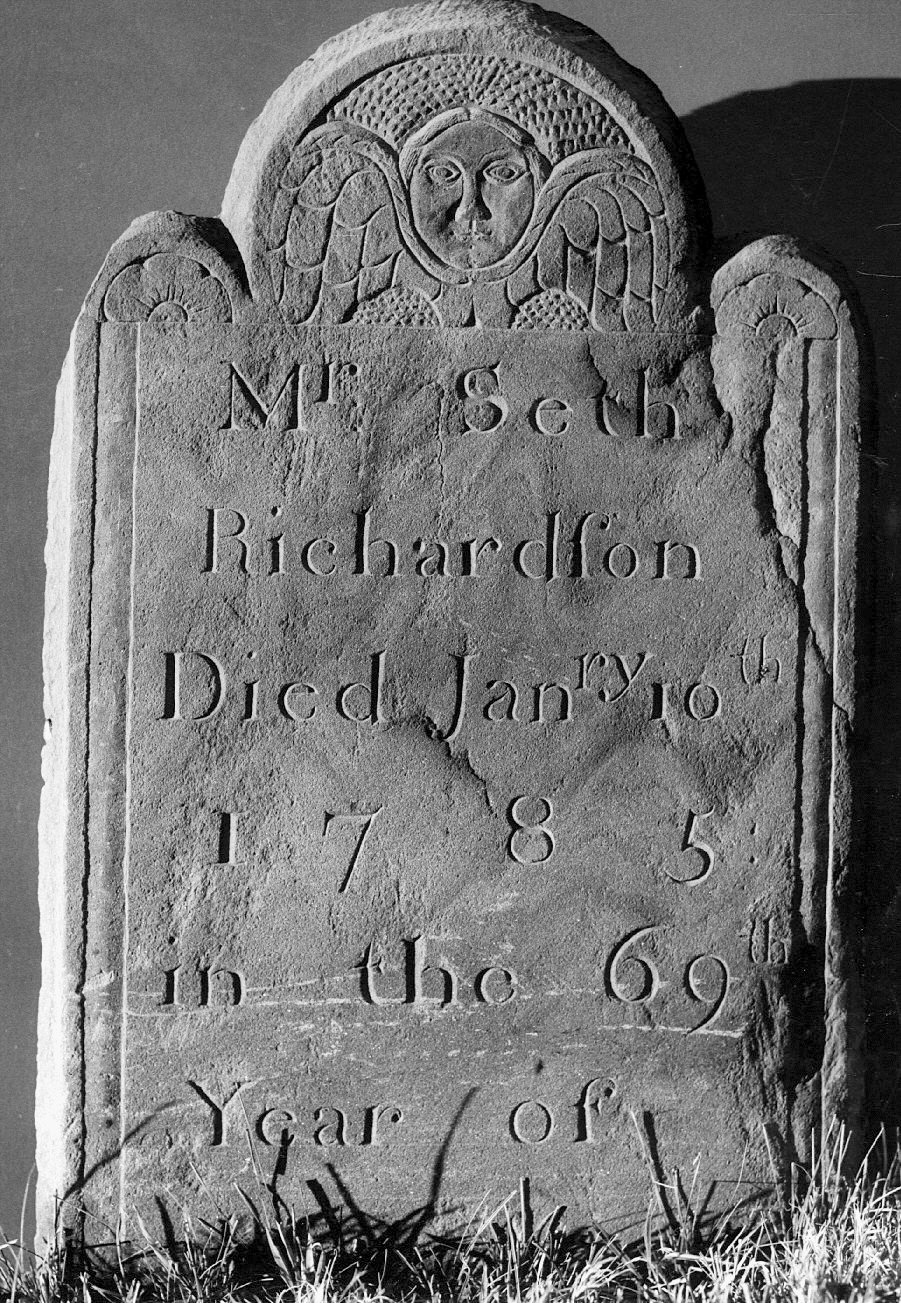 Mr. Seth
Richardſon
Died Janry 10th
1785
in the 69th
Year of